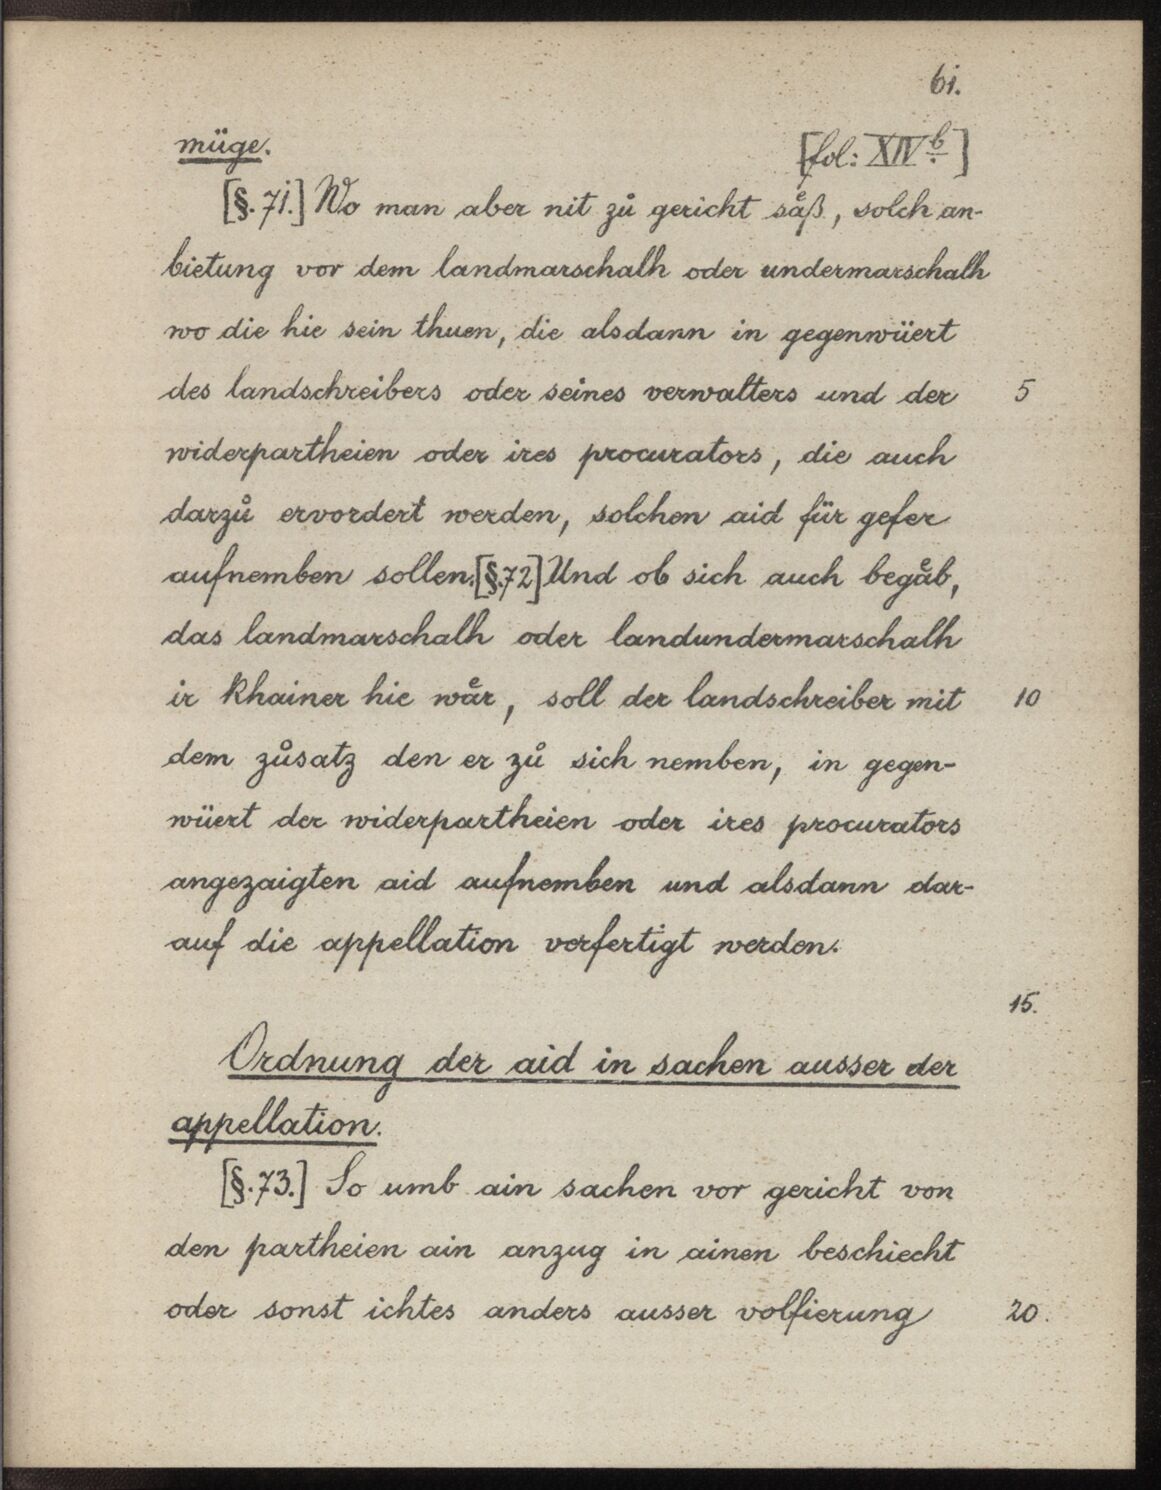 61.
müge. [fol: XIVb.]
[§. 71.] Wo man aber nit zů gericht såß, solch an-
bietung vor dem landmarschalh oder undermarschalh
wo die hie sein thuen, die alsdann in gegenwüert
des landschreibers oder seines verwalters und der 5
widerpartheien oder ires procurators, die auch
darzů ervordert werden, solchen aid für gefer
aufnemben sollen. [§. 72] Und ob sich auch begaͤb,
das landmarschalh oder landundermarschalh
ir khainer hie waͤr, soll der landschreiber mit 10
dem zůsatz den er zů sich nemben, in gegen-
wüert der widerpartheien oder ires procurators
angezaigten aid aufnemben und alsdann dar-
auf die appellation verfertigt werden.
15.
Ordnung der aid in sachen ausser der
appellation.
[§. 73.] So umb ain sachen vor gericht von
den partheien ain anzug in ainen beschiecht
oder sonst ichtes anders ausser volfierung 20.